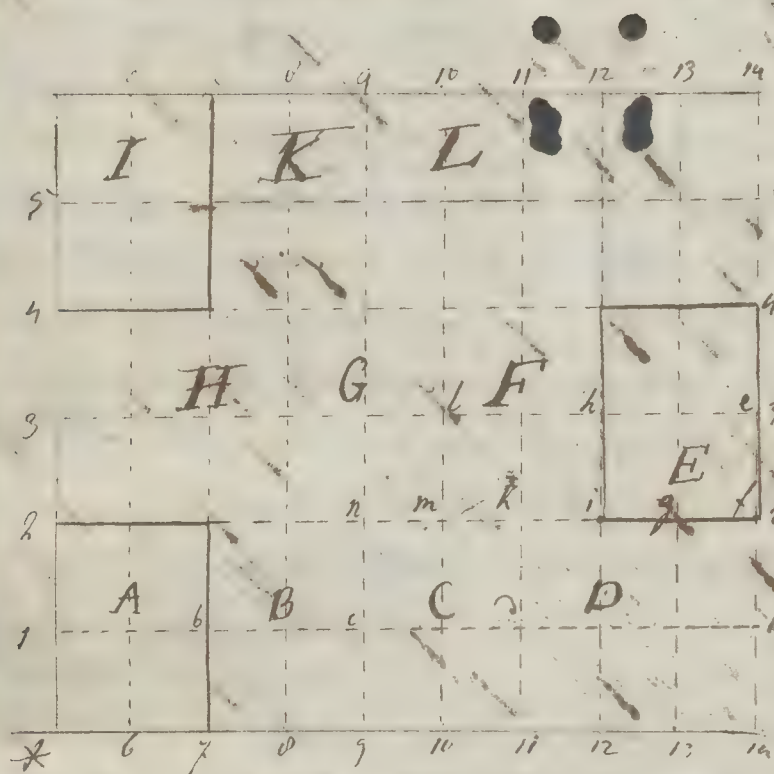 8 9 10 11 12 13 14
I K L
5
4 4
H G l F h e 3
E
2 n m k i g f 2
A b B c C D
1
* 6 7 8 9 10 11 12 13 14